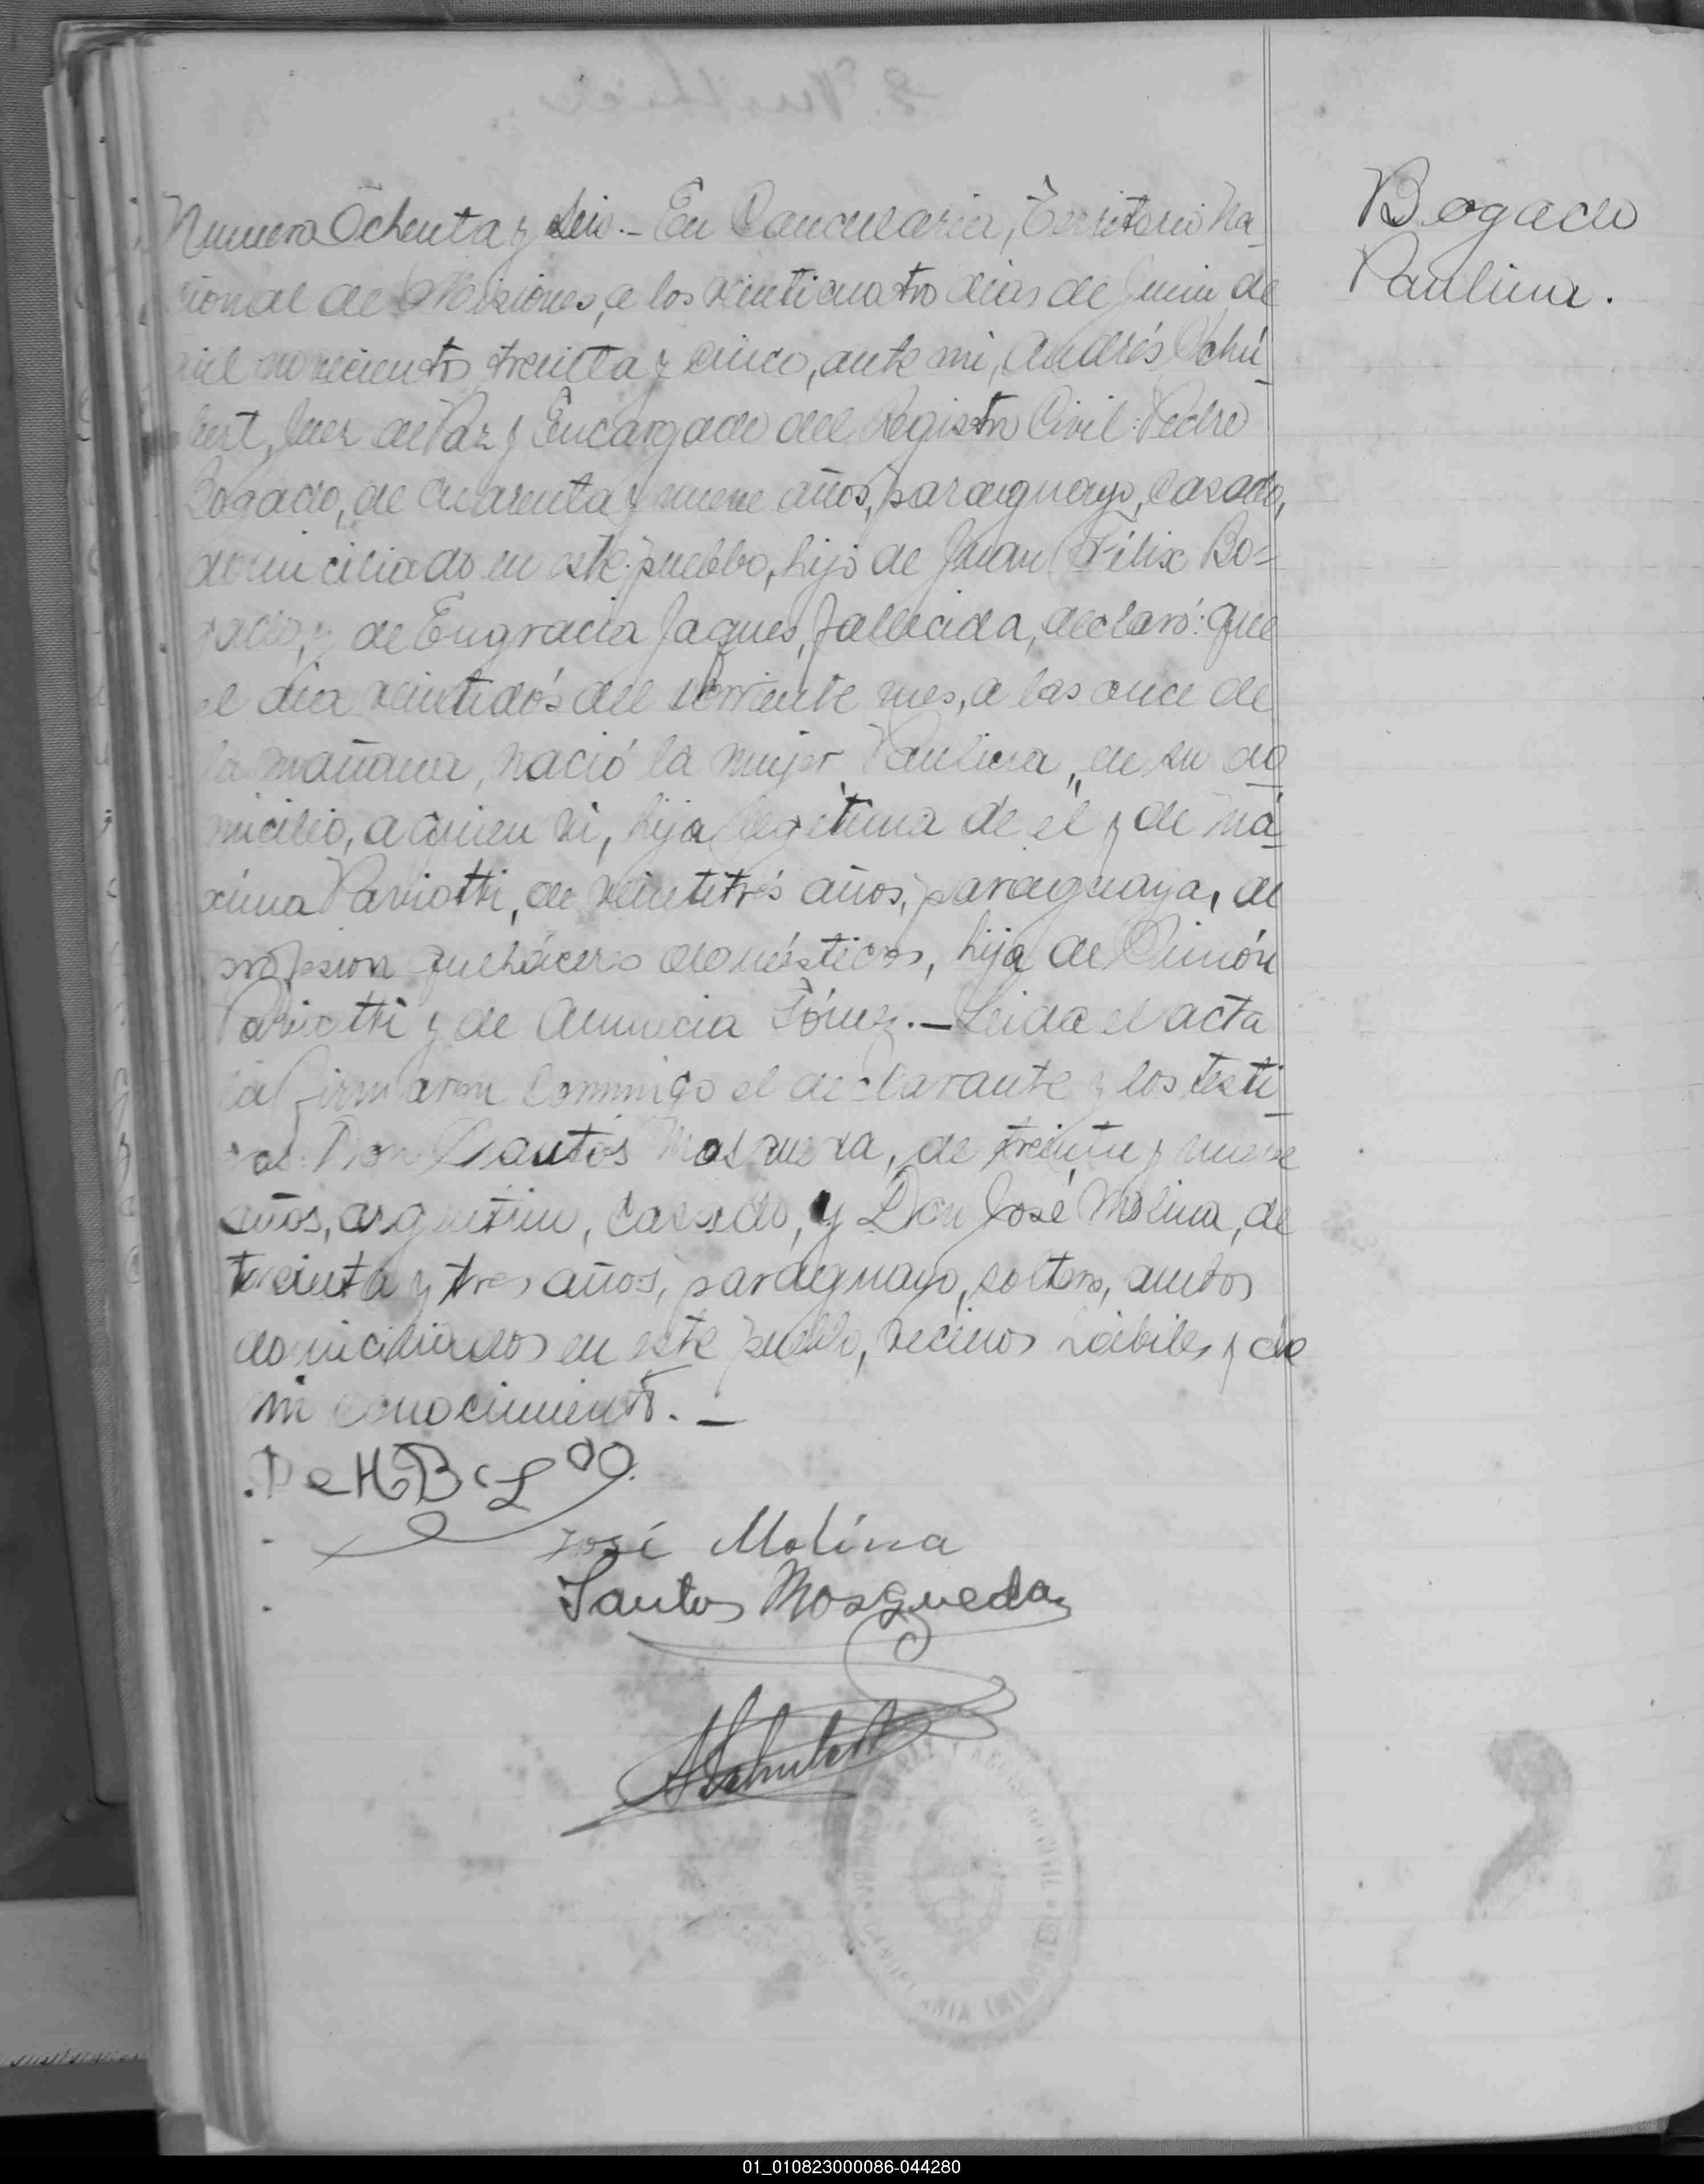 Bogado
Paulina.
Numero Ochenta y Seis.- En Candelaria, Territorio Na_
cional de Misiones, a los veinticuatro dias de Junio de
mil novecientos treinta y cinco, ante mi, Andrés Schú_
bert, Juez de Paz y Encargado del Registro Civil: Pedro
Bogado, de cuarenta y nueve años, paraguayo, casado,
domiciliado en este pueblo, hijo de Juan Félix Bo=
gado, y de Engracia Jaques, fallecida, declaró: que
el día veintidós del corriente mes, a las once de
la mañana, nació la mujer Paulina, en su do_
micilio, a quien vi, hija legitima de él y de Má_
xima Paviotti, de veintitrés años, paraguaya, de
profesion quehaceres domésticos, hija de Simón
Paviotti y de . – Leida el acta
la firmaron conmigo el declarante y los testi_
gos: Don Santos Mosqueda, de treinta y nueve
años, argentino, casado, y Don José Molina, de
treinta y tres años, paraguayo, soltero, ambos
domiciliados en este pueblo, vecinos hábiles y de
mi conocimiento. –
José Molina
Santos Mosqueda
ASchubert
REGISTRO CIVIL
CANDELARIA (MISIONES)
01_010823000086-044280